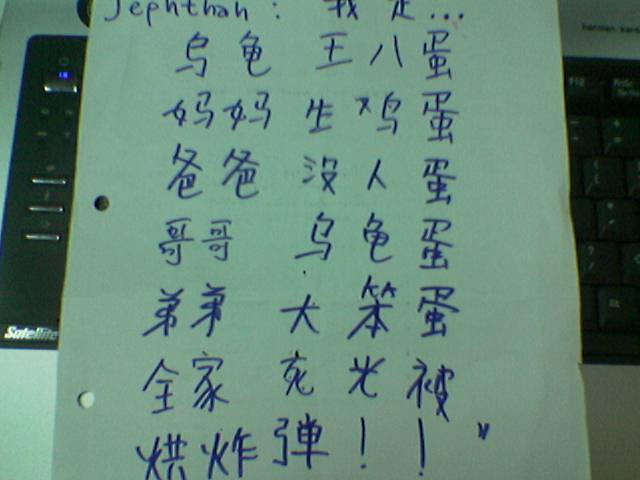 Jephthah: 我是...
乌龟 王八蛋
妈妈 生鸡蛋
爸爸 没人蛋
哥哥 乌龟蛋
弟弟 大笨蛋
全家 死光被
烘炸弹！！"
Satellite
harman kardon
F12